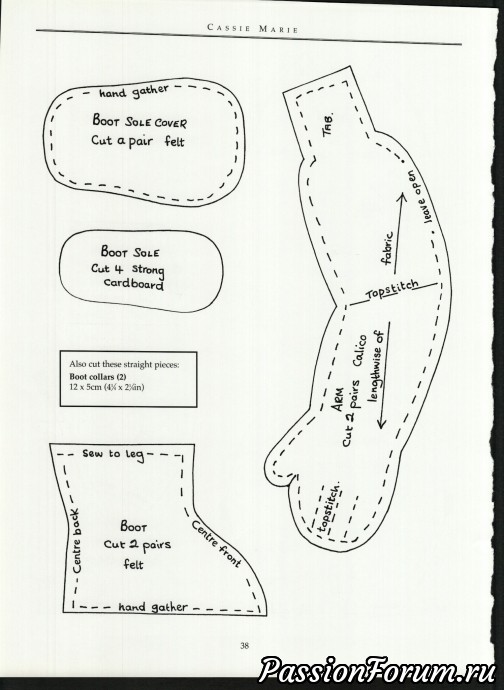 CASSIE MARIE
hand gather
BOOT SOLE COVER
Cut a pair felt
BOOT SOLE
Cut 4 strong
cardboard
Also cut these straight pieces:
Boot collars (2)
12 x 5cm (4¾ x 2⅛in)
Sew to leg
Centre back
BOOT
Cut 2 pairs
felt
Centre front
hand gather
TAB.
leave open
fabric
Topstitch
ARM
Cut 2 pairs Calico
lengthwise of
topstitch.
38
PassionForum.ru